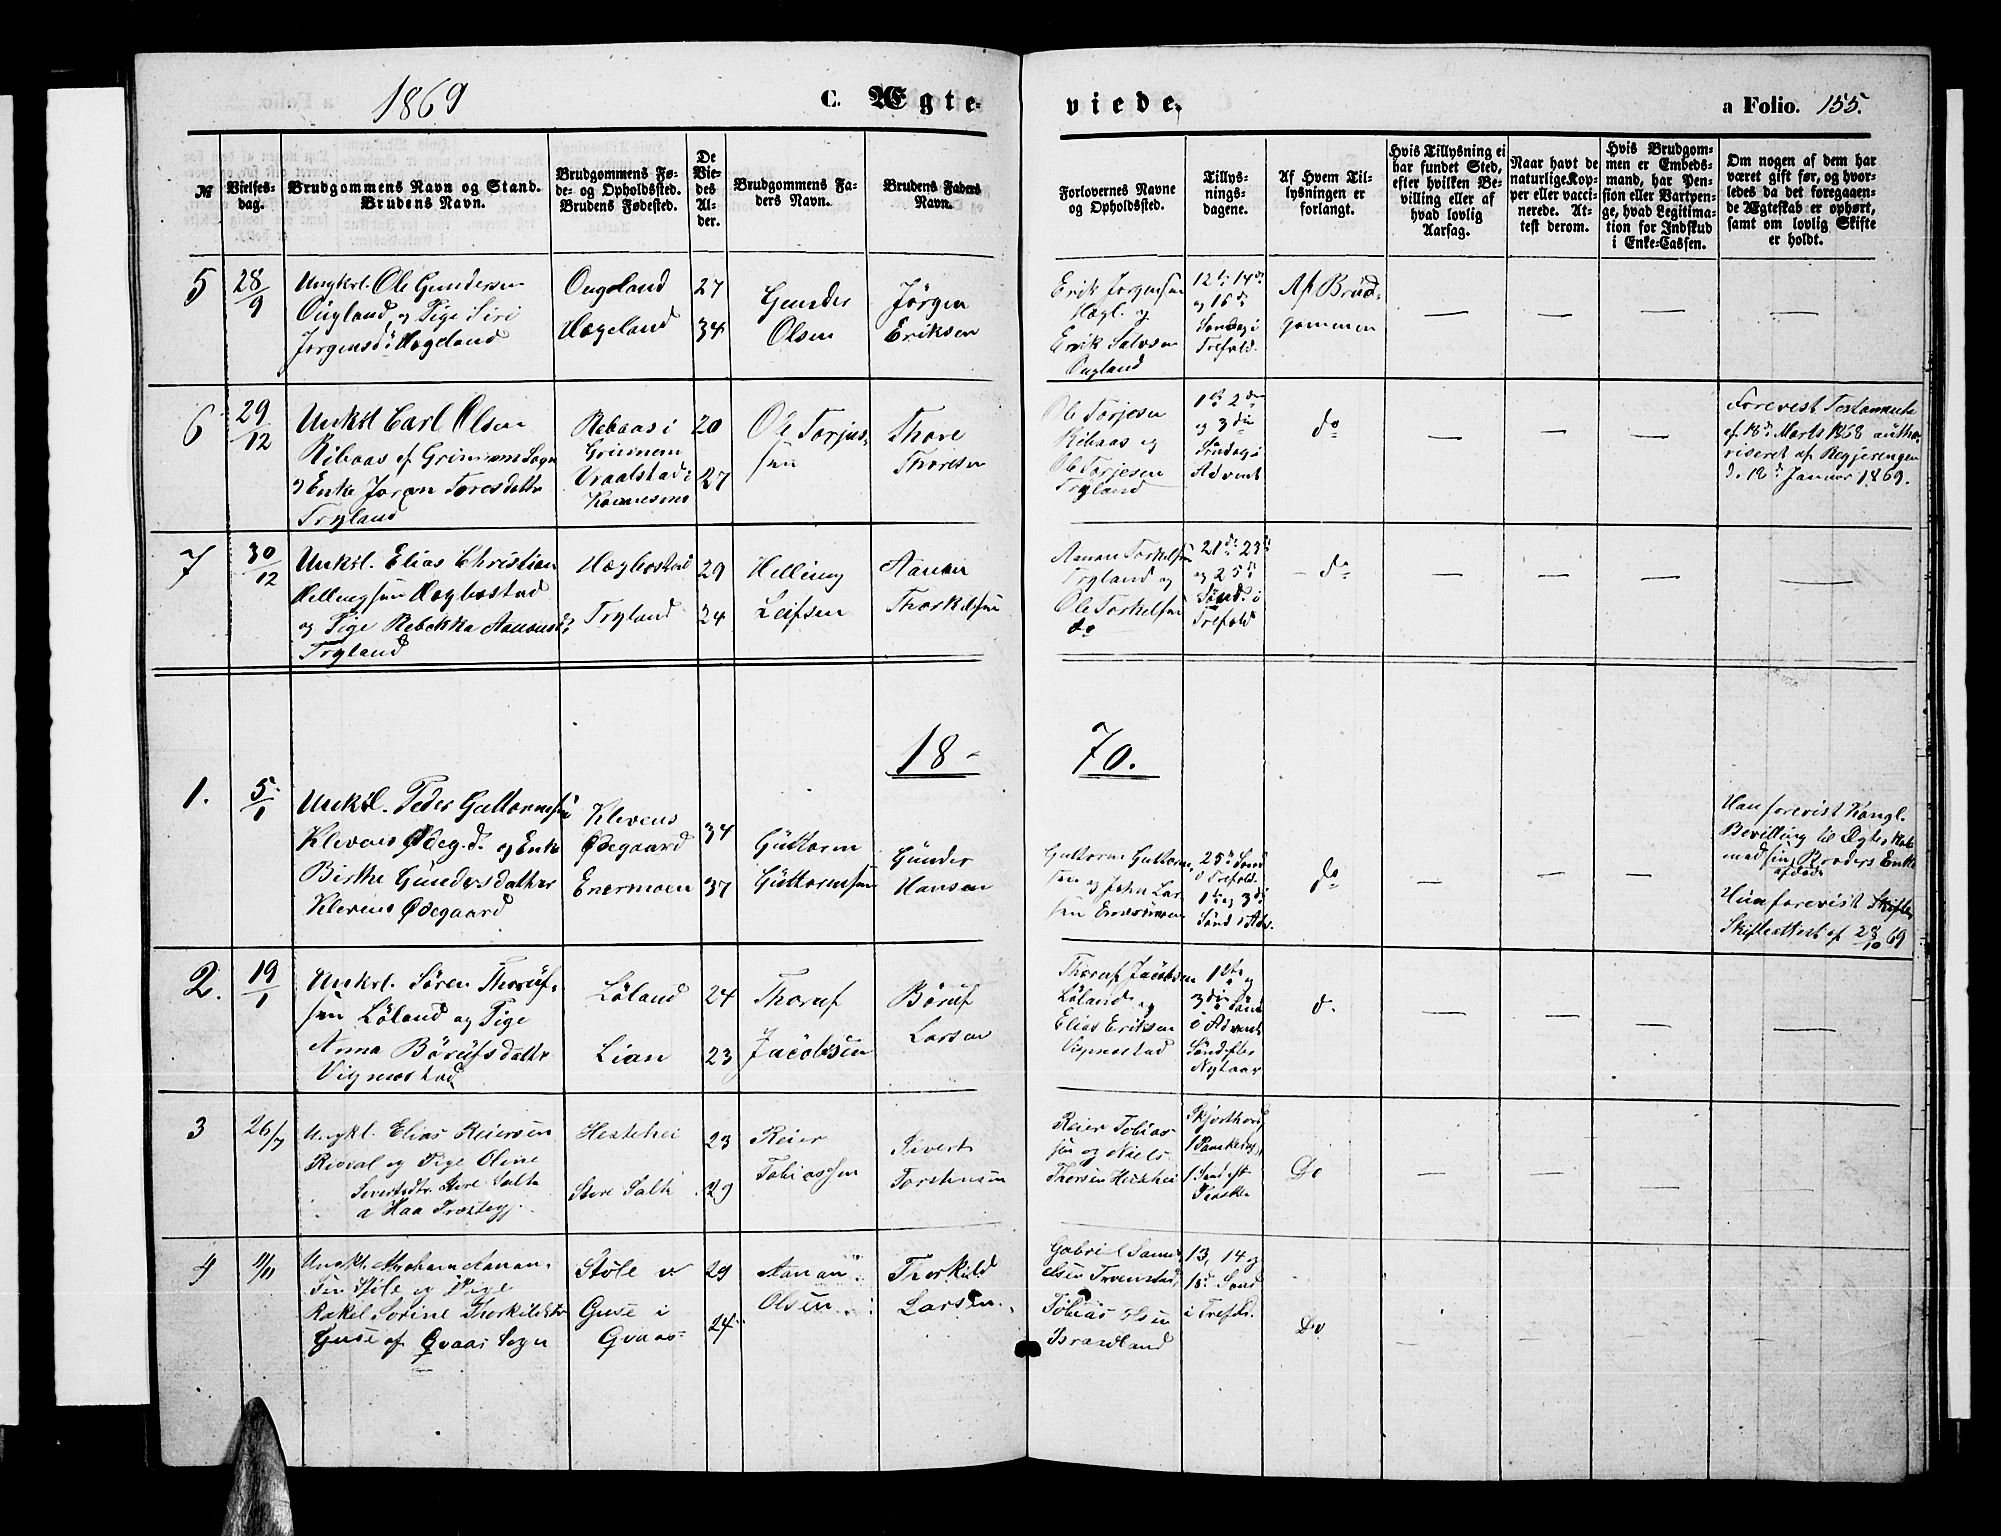 1869
C. Ægte-
viede.
a Folio. 155.
№
Vielses-
dag.
Brudgommens Navn og Stand.
Brudens Navn.
Brudgommens Fø-
de- og Opholdssted.
Brudens Fødested.
De
Vie-
des
Al-
der.
Brudgommens Fa-
ders Navn.
Brudens Faders
Navn.
Forlovernes Navne
og Opholdssted.
Tillys-
nings-
dagene.
Af Hvem Til-
lysningen er
forlangt.
Hvis Tillysning ei
har fundet Sted,
efter hvilken Be-
villing eller af
hvad lovlig
Aarsag.
Naar havt de
naturlige Kop-
per eller vacci-
nerede. At-
test derom.
Hvis Brudgom-
men er Embeds-
mand, har Pen-
sion eller Vartpen-
ge, hvad Legitima-
tion for Indskud
i Enke-Cassen.
Om nogen af dem har
været gift før, og hvor-
ledes da det foregaaen-
de Ægteskab er ophørt,
samt om lovlig Skifte
er holdt.
5
28/9
Ungkrl. Ole Gundersen
Ougland, og Pige Siri
Jørgensd: Hægeland
Ougland
Hægeland
27
34
Gunder
Olsen
Jørgen
Eriksen
Erik Jørgensen
Hægl. og
Erik Salvesen
Ougland
12te 14de
og 16de
Søndag i
Trefold.
Af Brud-
gommen
6
29/12
Unkrl Carl Olsen
Ribaas af Grimnæs Sogn
og Enke Joren Toresdatter
Tryland
Rebaas i
Grimnem
Vraalstad i
20
27
Ole Torjus-
sen
Thore
Thoresen
Ole Torjesen
Ribaas og
Ole Torjesen
Tryland
1ste 2den
og 3die
Søndag i
Advent
do
Forevist Testamente
af 18de Marts 1868 autho-
riseret af Regjeringen
d. 12te Januar 1869.
7
30/12
Unkrl. Elias Christian
Hellingsen Hægbostad
og Pige Rebekka Aanensd:
Tryland
Hægbostad
Tryland
29
24
Helling
Leifsen
Aanen
Thorkelsen
Aanen Torkelsen
Tryland og
Ole Torkelsen
do
21de 23de
og 25de
Sønd. i
Trefold
do
18-
70.
1.
5/1
Unkrl. Peder Guttormsen
Klevens Ødeg.d. og Enke
Birthe Gundersdatter
Klevens Ødegaard
Klevens
Ødegaard
Enermoen
34
37
Guttorm
Guttormsen
Gunder
Hansen
Guttorm Guttorm-
sen og John Lar-
sen
25de Sønd
i Trefold.
1ste og 3die
Sønd i Adv.
do
Han forevist Kongl.
Bevilling til Ægteskab
med sin afdøde Broders Enke
Hun forevist Skifte
Skifteattest af 28/10 69
2.
19/1
Unkrl. Søren Thoruf-
sen Løland og Pige
Anna Børufsdatter
Vigmostad
Løland
Lian
24
23
Thoruf
Jacobsen
Børuf
Larsen
Thoruf Jacobsen
Løland og
Elias Eriksen
Vigmostad
1ste og
3die Sønd
i Advent
Sønd efter
Nytaar
d.
3
26/7
Ungkl. Elias Reiersen
og Pige Oline
Sivertsdtr. Store Salte
a Haa Præstegj.
Hestehei
Store Salte
23
29
Reier
Tobiassen
Sivert
Torstensen
Reier Tobias-
sen og Niels
Thorsen Hestehei
1 Sønd eft
Paaske
Do
4
11/11
Ungkl. Abraham Aanen-
sen Støle og Pige
Rakel Serine Thorkildsdtr
Guse af Qvaas Sogn
Støle v
Guse i
Qvaas
29
24
Aanen
Olsen
Thorkild
Larsen
Gabriel Samu-
elsen Tronstad,
Tobias Olsen
Brandland
13, 14 og
18de Sønd
i Trefd.
Do